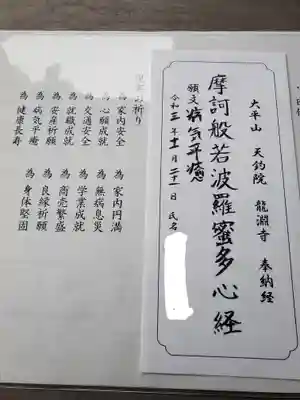 太平山 天鈞院 龍淵寺 奉納経
摩訶般若波羅蜜多心経
願文 病気平癒
令和三年十一月二十一日 氏名
祈り
為 家内安全 為 家内円満
為 心願成就 為 無病息災
為 交通安全 為 学業成就
為 就職成就 為 商売繁盛
為 安産祈願 為 良縁祈願
為 病気平癒 為 身体堅固
為 健康長寿